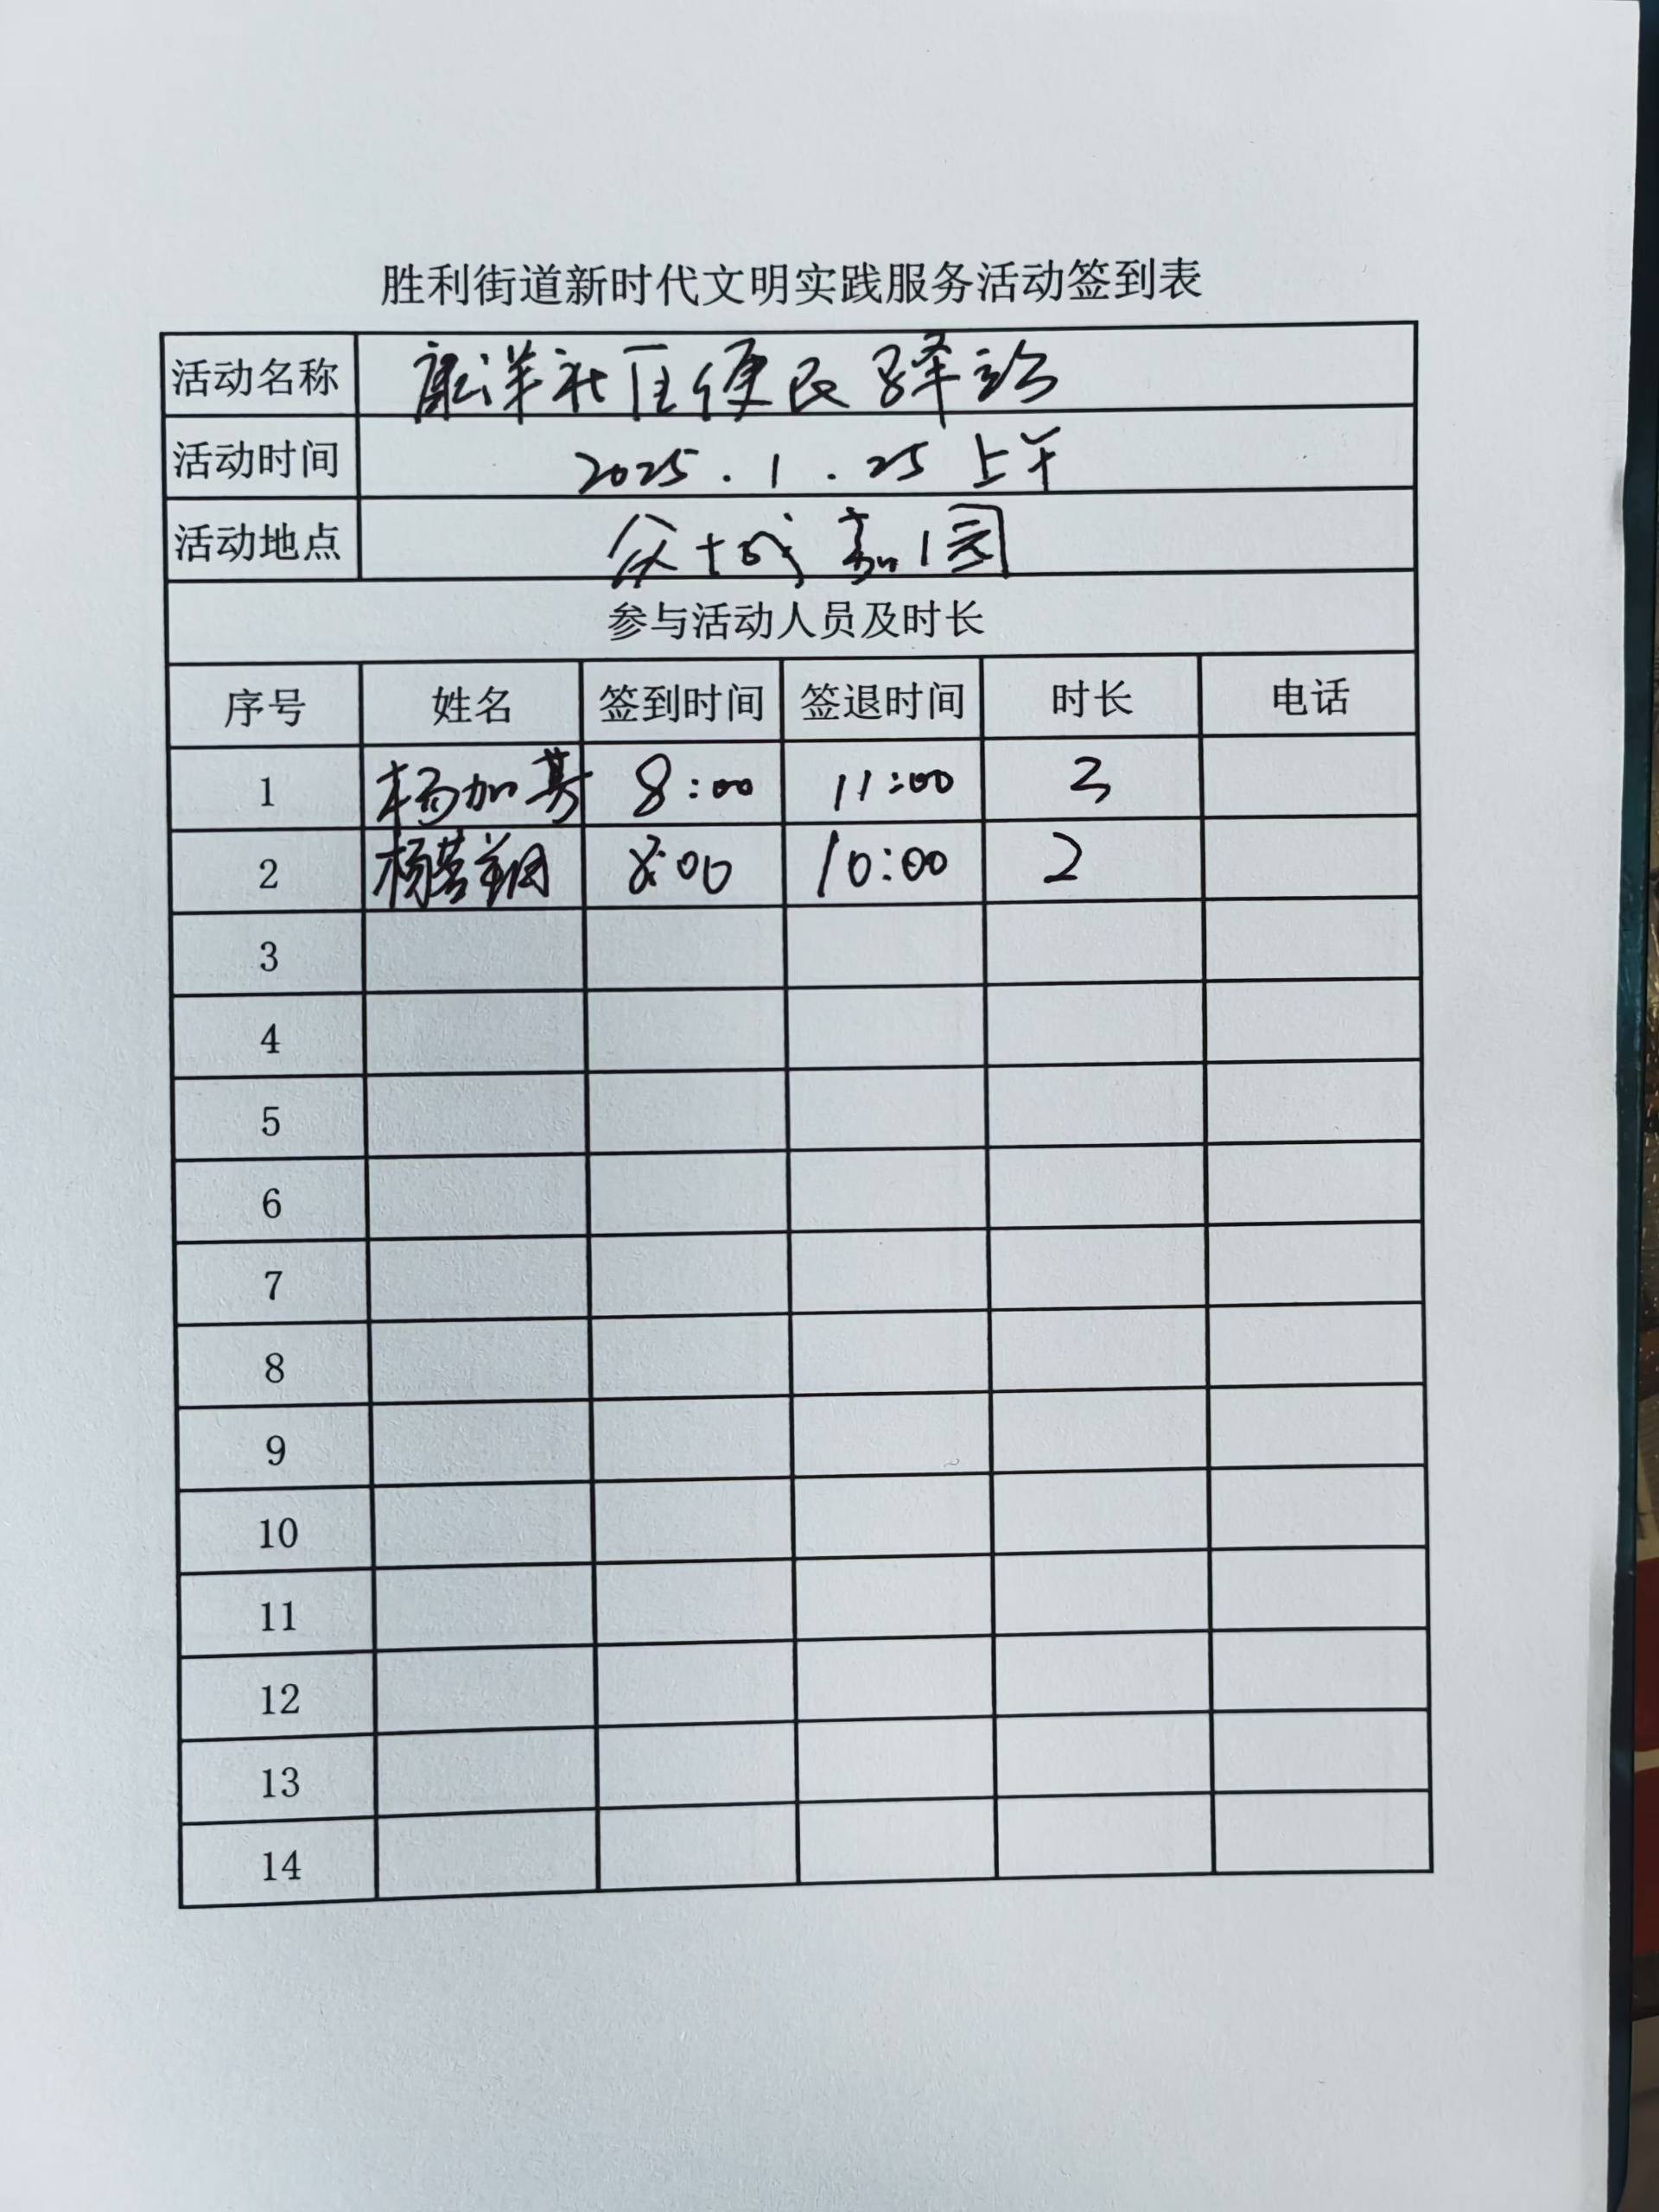 胜利街道新时代文明实践服务活动签到表
活动名称 社区便民驿站
活动时间 2025.1.25 上午
活动地点 众城嘉园
参与活动人员及时长
序号 姓名 签到时间 签退时间 时长 电话
1 杨加 8:00 11:00 3
2 杨 翔 8:00 10:00 2
3
4
5
6
7
8
9
10
11
12
13
14